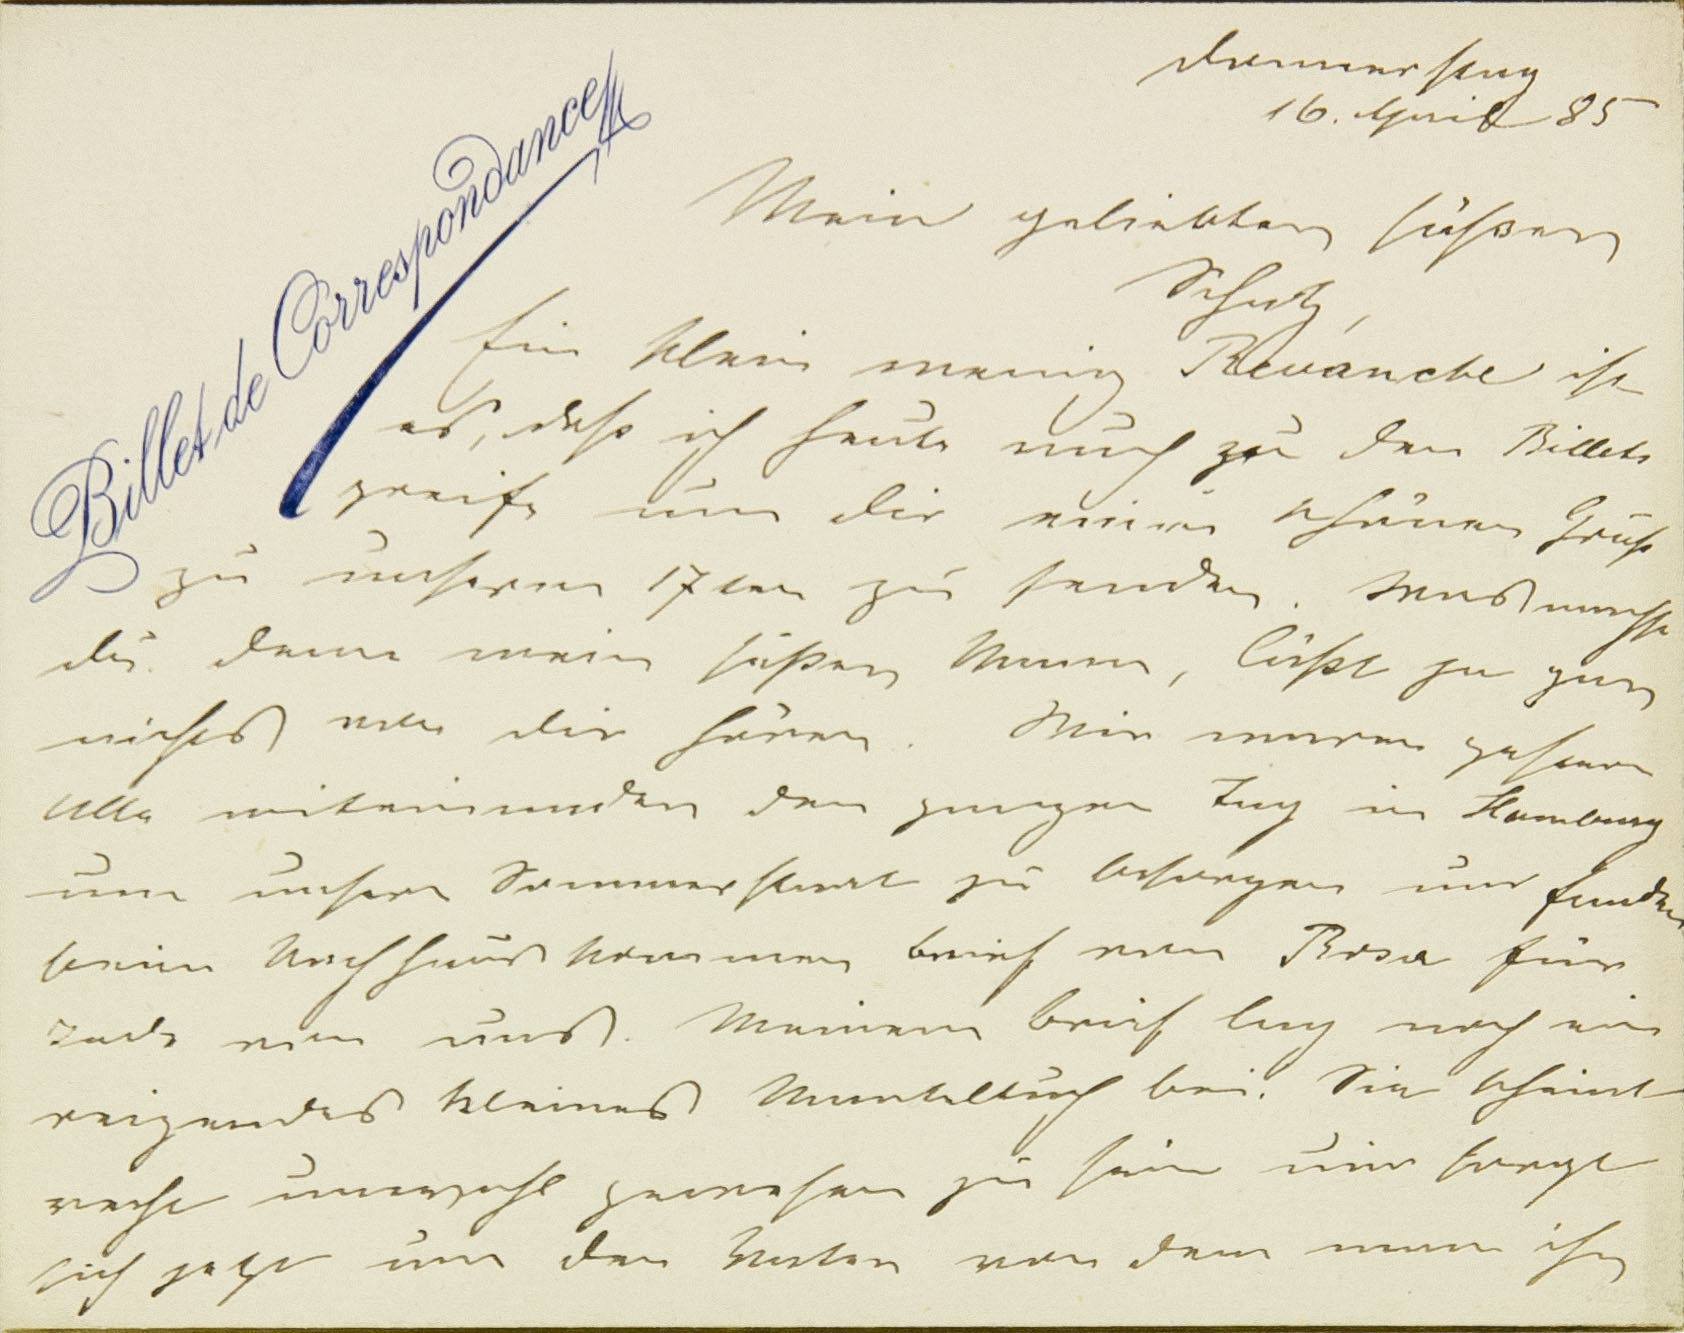 Billet de Correspondance
Donnerstag
16. April 85
Mein geliebter süßer
Schatz,
Ein klein wenig Revanche ist
es, daß ich heute auch zu den Billets
greife um dir einen schönen Gruß
zu unserem 17ten zu senden. Was machst
du denn mein süßer Mann, läßt ja gar
nichts von dir hören. Wir waren gestern
Alle miteinander den ganzen Tag in Hamburg
um unsere Sommerstaat zu besorgen und fanden
beim Nachhausekommen brief von Rosa für
Jede von uns. Meinem brief lag noch ein
reizendes kleines Manteltuch bei. Sie scheint
recht unwohl gewesen zu sein und sorgt
sich jetzt um den Vater von dem man ihr